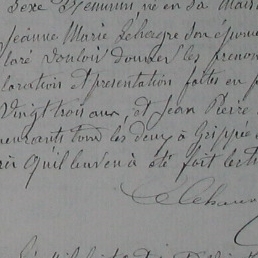 Sexe Féminin, né en sa maison
Jeanne Marie Lehergre son épouse
claré vouloir donner les prenoms
claration et présentation faites en p
Vingt trois ans, et Jean Pierre
meurants tous les deux à Grippé
rès qu'il leur en a été fait lectu